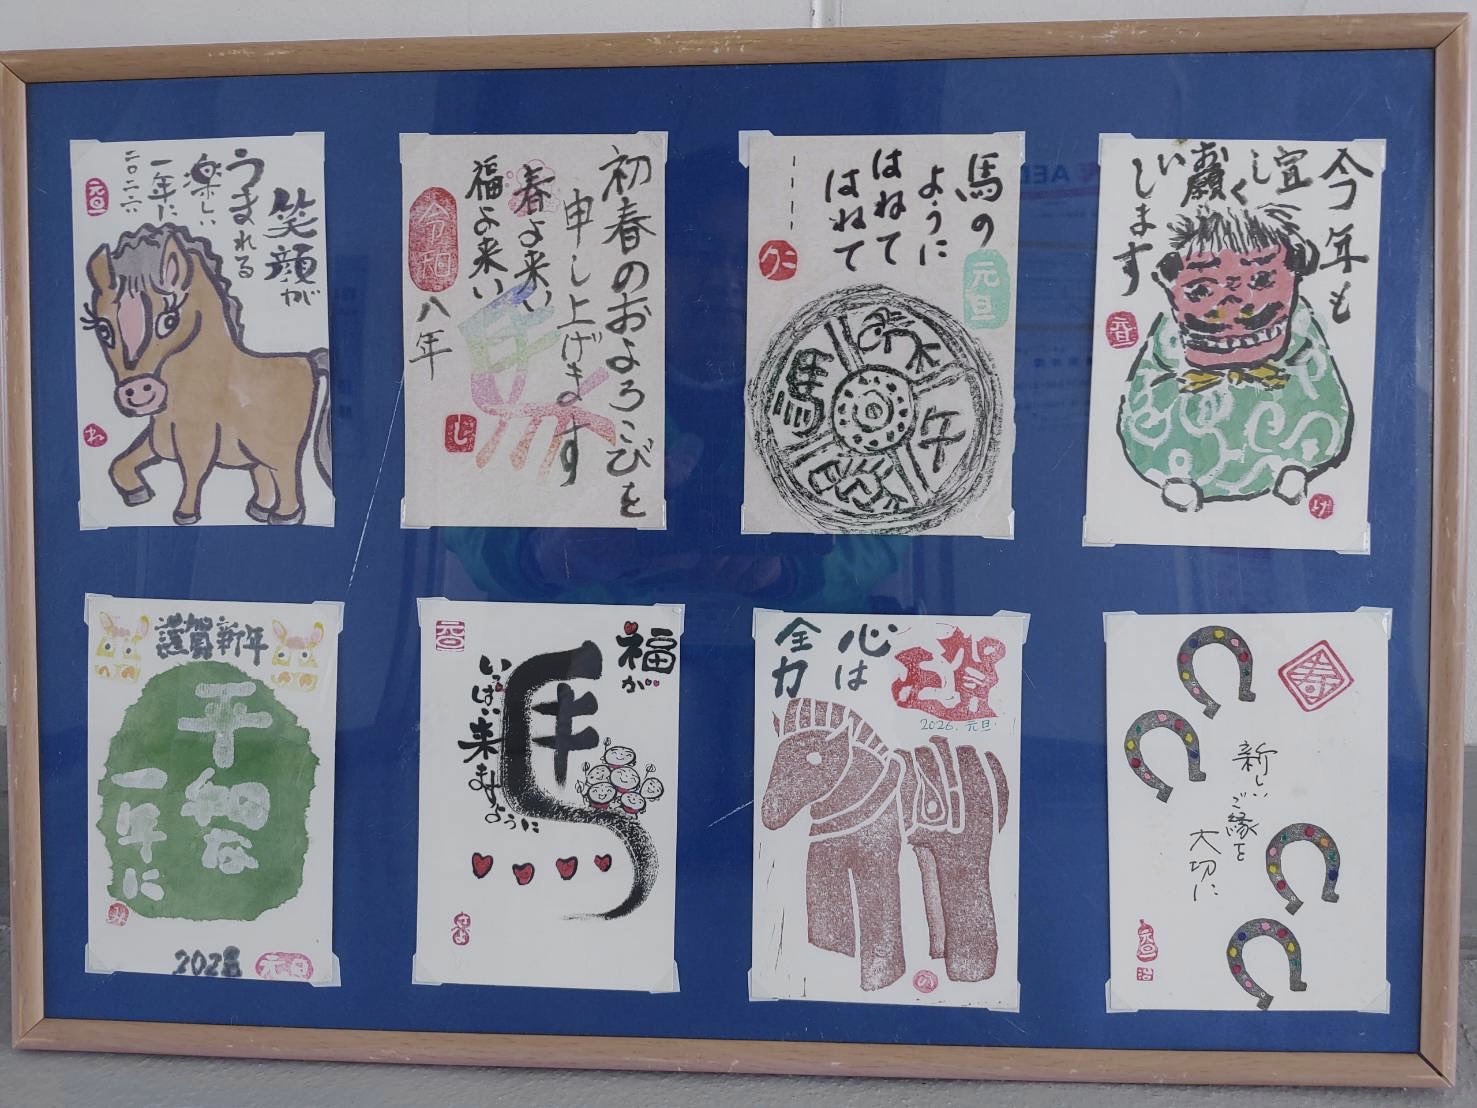 笑顔が
うまれる
楽しい
一年に
二〇二六
元旦
ね
初春のおよろこびを
申し上げます
春よ来い
福よ来い
令和
八年
馬
し
馬の
ように
はねて
はねて
元旦
クニ
馬
午
今年も
宜しく
お願い
します
元旦
げ
謹賀新年
平和な
一年に
元旦
福が
いっぱい来ますように
元旦
賀正
2026.元旦
心は
全力
の
寿
新しい
ご縁を
大切に
元旦